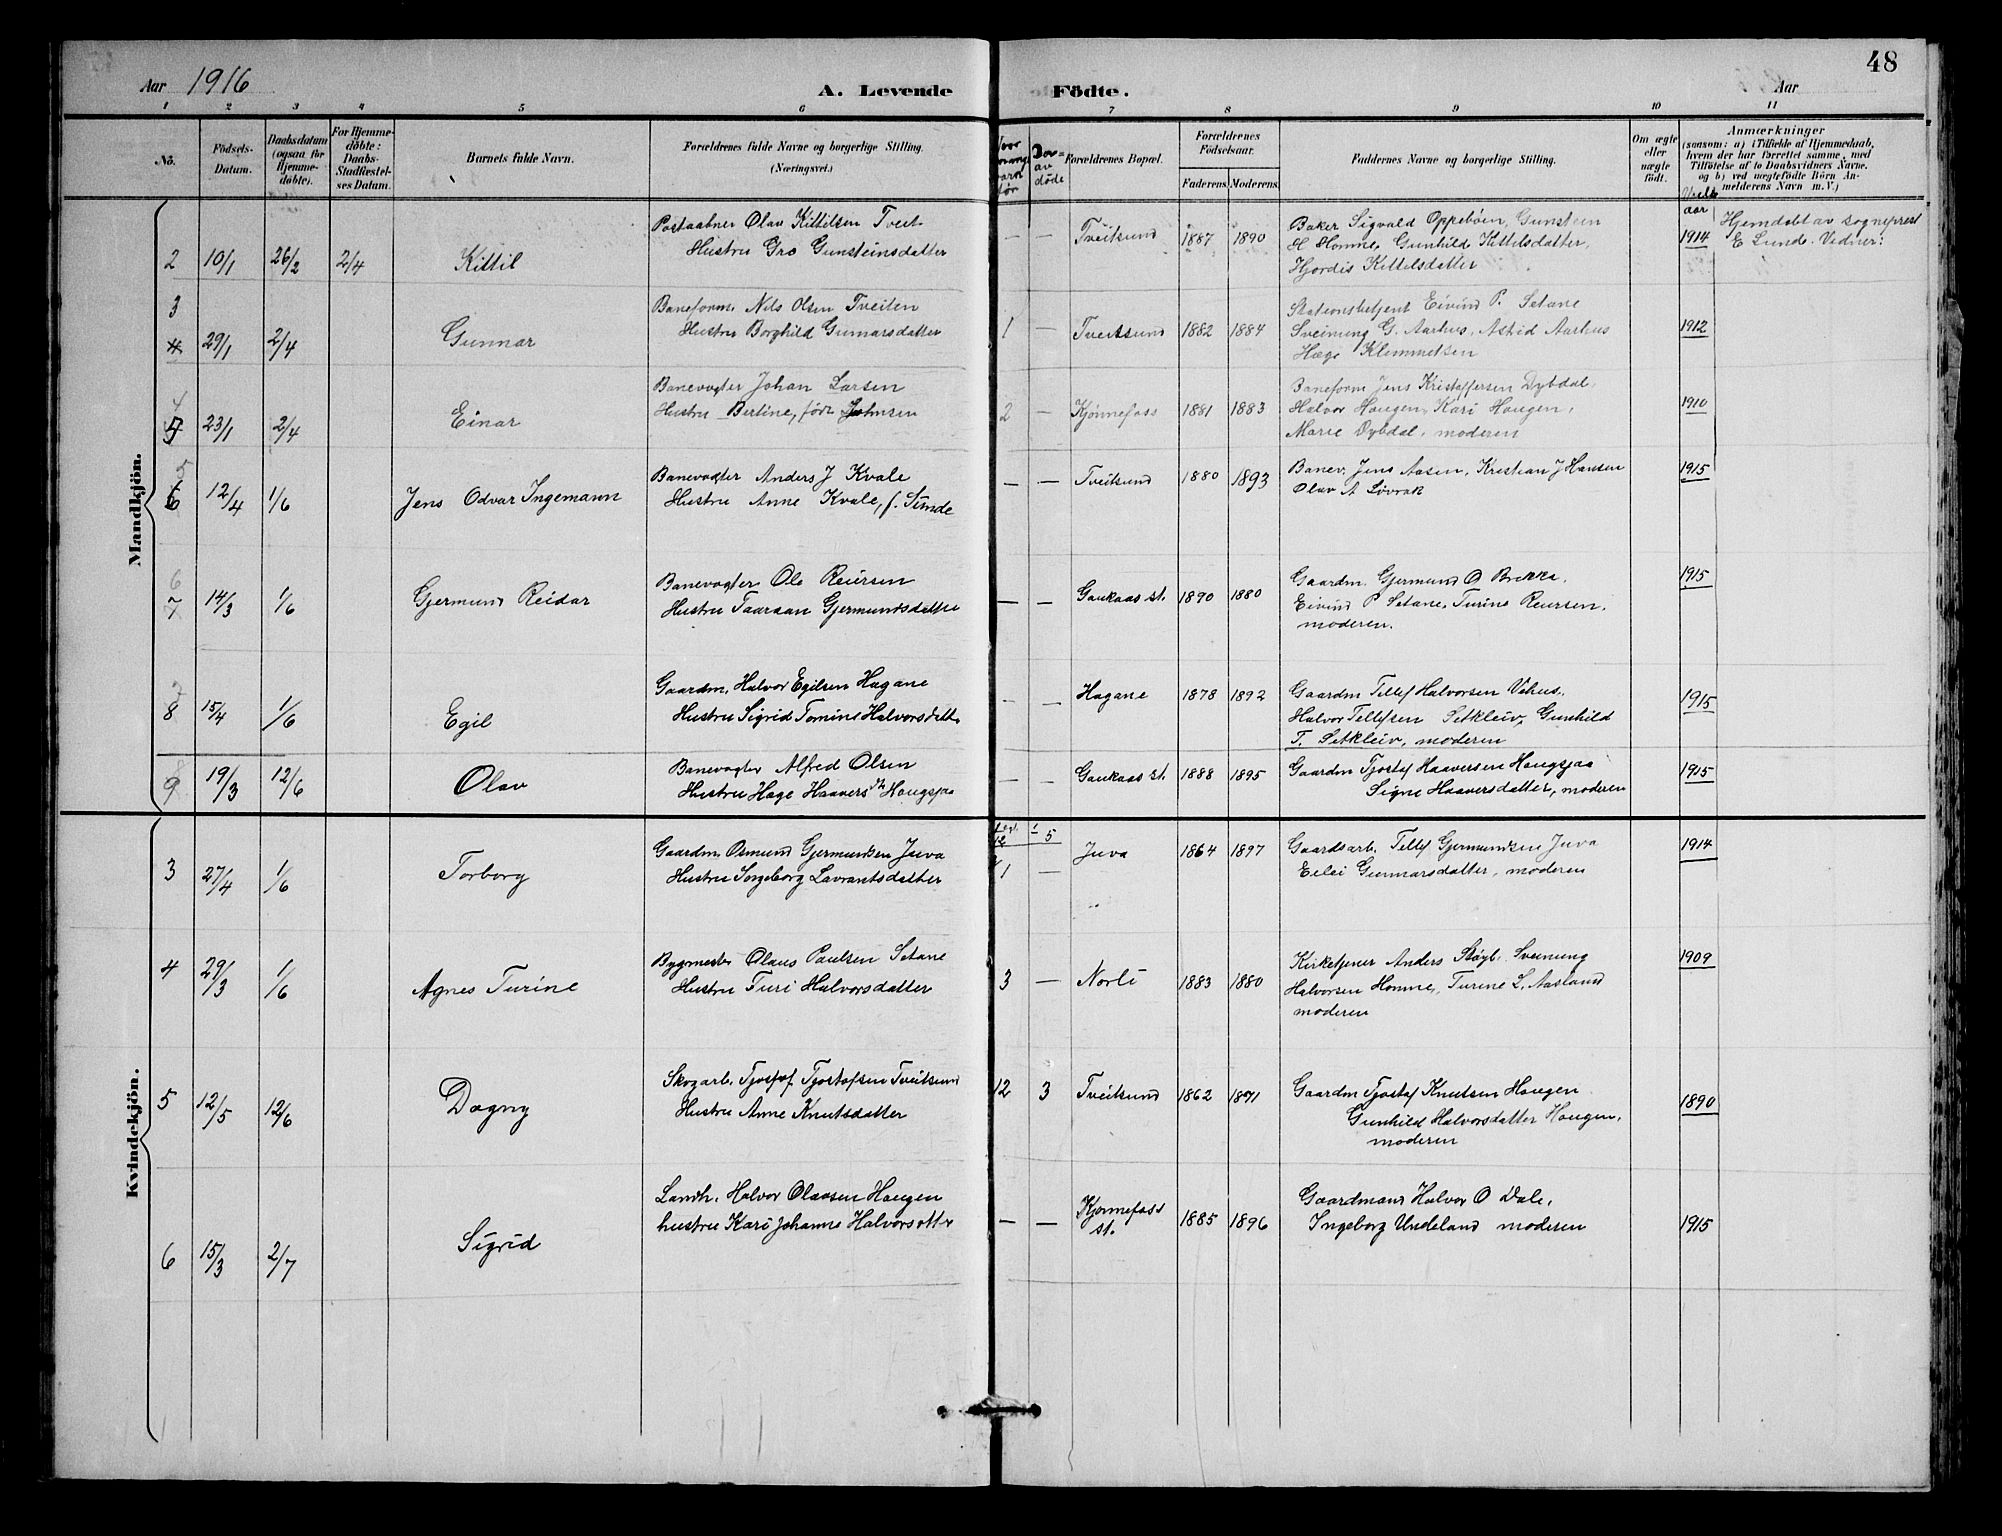 48
Aar 1916
A. Levende
Födte.
Aar
1 2 3 4 5 6 7 8 9 10 11
No.
Födsels-
Datum.
Daabsdatum
(ogsaa for
Hjemme-
döbte).
For Hjemme-
döbte:
Daabs-
Stadfæstel-
ses Datum.
Barnets fulde Navn.
Forældrenes fulde Navne og borgerlige Stilling.
(Næringsvei.)
Forældrenes Bopæl.
Forældrenes
Födselsaar.
Faderens.
Moderens.
Faddernes Navne og borgerlige Stilling.
Om ægte
eller
uægte
födt.
Anmærkninger
(saasom: a) i Tilfælde af Hjemmedaab,
hvem der har forrettet samme, med
Tilföielse af to Daabsvidners Navne,
og b) ved uægtefödte Börn An-
melderens Navn m. V.)
aar
Mandkjön.
2 10/1 26/2 2/4 Kittil
Postaabner Olav Kittilsen Tveit
Hustru Gro Gunsteinsdatter
— — Tveitsund 1887 1890
Baker Sigvald Oppeböen, Gunstein
H Homme, Gunhild Kittilsdatter,
Hjordis Kittelsdatter
1914
Hjemdöbt av sogneprest
E Lunde. Vidner:
3
4 29/1 2/4 Gunnar
Baneform. Nils Olsen Tveiten
Hustru Borghild Gunnarsdatter
1 — Tveitsund 1882 1884
Stationsbetjent Eivind P. Setane
Sveinung G. Aarhus, Astrid Aarhus
Hæge Klemmetsen
1912
4
5 23/1 2/4 Einar
Banevogter Johan Larsen
Hustru Bertine, född Johnsen
2 — Kjønnefoss 1881 1883
Baneform Jens Kristoffersen Dybdal,
Halvor Haugen, Kari Haugen,
Marie Dybdal, moderen
1910
5
6 12/4 1/6 Jens Odvar Ingemann
Banevogter Anders J Kvale
Hustru Anne Kvale, f. Sunde
— — Tveitsund 1880 1893
Banev. Jens Aasen, Kristian J Hansen
Olav A Løvrak
1915
6
7 14/3 1/6 Gjermund Reidar
Banevogter Ole Reiersen
Hustru Taaraan Gjermundsdatter
— — Gaukaas st. 1890 1880
Gaardm. Gjermund O Brekka,
Eivind P. Setane, Turine Reiersen,
moderen.
1915
7
8 15/4 1/6 Egil
Gaardm. Halvor Egilsen Hagane
Hustru Sigrid Tomine Halvorsdatt.
— — Hagane 1878 1892
Gaardm Tellef Halvorsen Vehus,
Halvor Tellefsen Setkleiv, Gunhild
T. Setkleiv, moderen
1915
8
9 19/3 12/6 Olav
Banevogter Alfred Olsen
Hustru Hæge Haavers dtr Haugsjaa
— — Gaukaas st. 1888 1895
Gaardm Tjostef Haaversen Haugsjaa
Signe Haaversdatter, moderen
1915
Kvindekjön.
3 27/4 1/6 Torborg
Gaardm. Osmund Gjermundsen Juva
Hustru Ingeborg Lavrantsdatter
1 — Juva 1864 1897
Gaardsarb. Tellef Gjermundsen Juva
Eilei Gunnarsdatter, moderen
1914
4 29/3 1/6 Agnes Turine
Bygmester Olaus Paulsen Setane
Hustru Turi Halvorsdatter
3 — Norli 1883 1880
Kirketjener Anders Støyl. Sveinung
Halvorsen Homme, Turine L. Aasland
moderen
1909
5 12/5 12/6 Dagny
Skogarb. Tjostof Tjostofsen Tveitsund
Hustru Anne Knutsdatter
12 3 Tveitsund 1862 1871
Gaardm Tjostof Knutsen Haugen
Gunhild Halvorsdatter Haugen,
moderen
1890
6 15/3 2/7 Sigrid
Landh. Halvor Olavsen Haugen
hustru Kari Johanne Halvorsdtter
— — Kjønnefoss
st. 1885 1896
Gaardmand Halvor O Dale,
Ingeborg Undeland moderen
1915